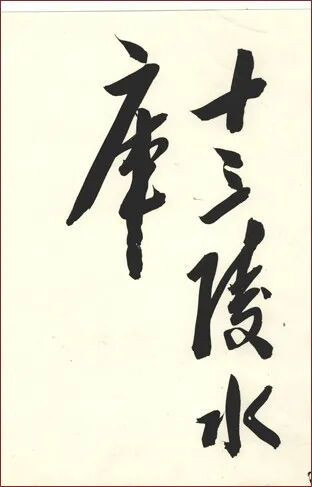 十三陵水
库